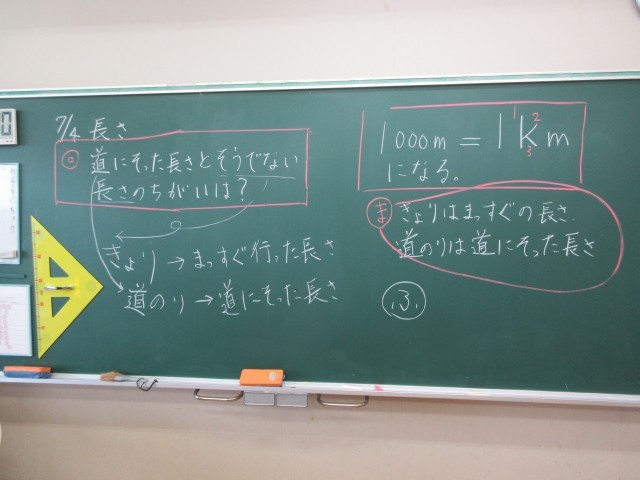 7/4 長さ
◎ 道にそった長さとそうでない
長さのちがいは?
きょり→まっすぐ行った長さ
道のり→道にそった長さ
1000m=1km
になる。
1 2
3
ま きょりはまっすぐの長さ.
道のりは道にそった長さ
ふ